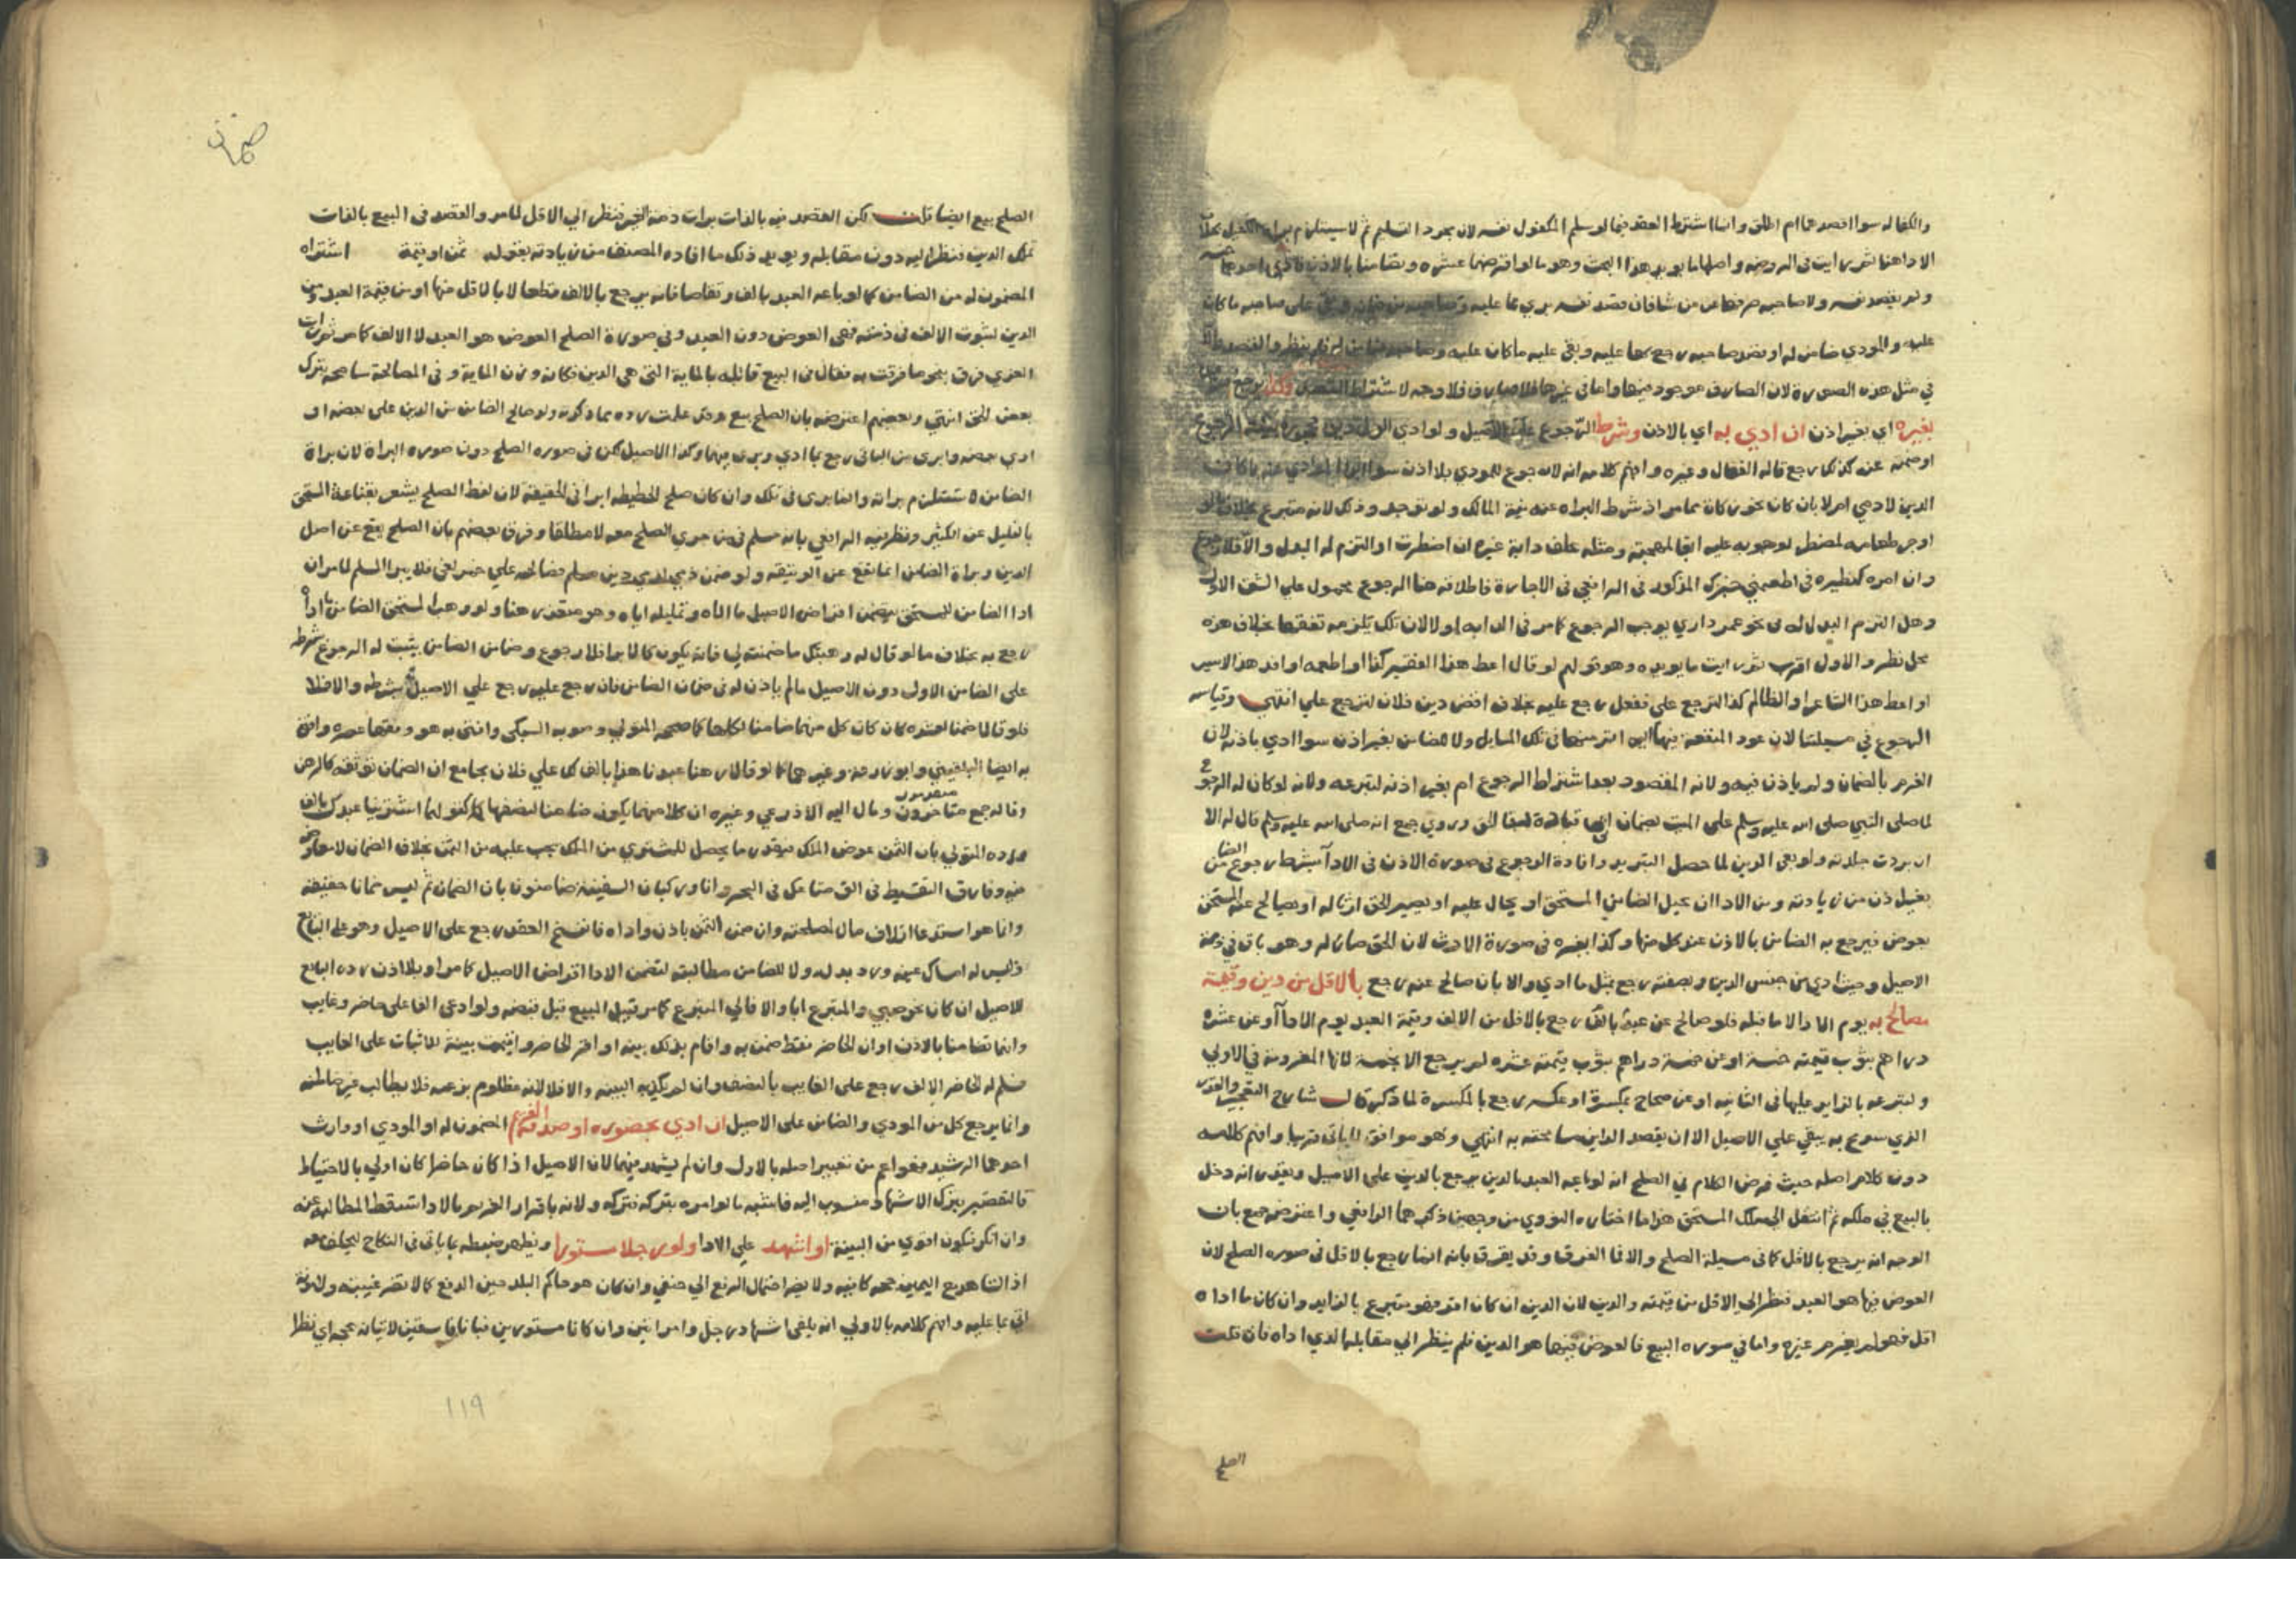 والكفاله سوا اقصدهما ام اطلق وانما اشترط العقد فيما لو سلم المكفول نفسه لان مجرد التسليم ثم لا يستلزم براة الكفيل بخلاف
الاداهنا ثم رايت في الروضه واصلها ما يويد هذا البحث وهو ما لو اقترضا عشره وتضامنا بالاذن فادي احدهما خمسه
ولم يقصد نفسه ولا صاحبه صرفها عن من شا فان قصد نفسه بري مما عليه وصاحبه من ضمان وبقي على صاحبه ما كان
عليه والمودي ضامن له او قصد صاحبه رجع بها عليه وبقي عليه ما كان عليه وصاحبه ضامن له فلم ينظر والقصد
في مثل هذه الصورة لان الصارف موجود فيها واما في غيرها فلا صارف فلا وجه لاشتراط القصد وكذا يرجع
بغيره اي بغير اذن ان ادي به اي بالاذن وشرط الرجوع على الاصيل ولو ادي الولي دين محجوره بنية الرجوع
او ضمنه عنه كذلك رجع قاله القفال وغيره وافهم كلامه انه لا رجوع للمودي بلا اذن سوا
الدين لادمي ام لا بان كان نحو زكاة مما مر اذ شرط البراه عنه نية المالك ولم توجد وذلك لانه متبرع بخلاف ما لو
اوجر طعامه لمضطر لوجوبه عليه ابقا لمهجته ومثله علف دابة غيره ان اضطرت او التزم له البدل والا فلا رجوع
وان امره كنظيره في اطعمني خبزك المذكور في الرافعي في الاجارة فاطلاقه هنا الرجوع محمول علي الشق الاول
وهل التزم البدل له في نحو عمر داري يوجب الرجوع كما مر في الدابه او لا لان تلك يلزمه نفقتها بخلاف هذه
محل نظر والاول اقرب ثم رايت ما يويده وهو قولهم لو قال اعط هذا الفقير كذا او اطعمه او افد هذا الاسير
او اعط هذا الشاعر او الظالم كذا لترجع علي ففعل رجع عليه بخلاف اقض دين فلان لترجع علي انتهي وقياسه
الرجوع في مسيلتنا لان عود المنفعة فيها اليه اتم منها في تلك المسايل ولا للضامن بغير اذن سوا ادي باذنه لان
الغرم بالضمان ولم ياذن فيه ولانه المقصود بعد اشتراط الرجوع ام بغير اذنه لتبرعه ولانه لو كان له الرجوع
لما صلى النبي صلى الله عليه وسلم على الميت بضمان ابي قتادة لبقا الحق وروي جمع انه صلى الله عليه وسلم قال له الان
ان بردت جلدته ولو بقي الدين لما حصل التبريد وافادة الرجوع في صورة الاذن في الادا بشرط رجوع الضامن
بقيل ذن من زيادته ومن الادا ان يحيل الضامن المستحق او يحال عليه او يصير الحق ارثا له او يصالح عنه المستحق
بعوض فيرجع به الضامن بالاذن عند كل منها وكذا بغيره في صورة الارث لان الحق صار له وهو باق في ذمة
الاصيل وحيث ادي من جنس الدين وبصفته رجع بمثل ما ادي والا بان صالح عنه رجع بالاقل من دين وقيمة
مصالح به يوم الادا لا ما قبله فلو صالح عن عبد بالف رجع بالاقل من الالف وقيمة العبد يوم الادا او عن عشرة
دراهم بثوب قيمته خمسة او عن خمسة دراهم بثوب قيمته عشره لم يرجع الا بخمسة لانها المغرومة في الاولي
ولتبرعه بالزايد عليها في الثانيه او عن صحاح بمكسرة او عكسه رجع بالمكسرة لما ذكر قال شارح التعجيز والقدر
الذي سومح به يبقي علي الاصيل الا ان يقصد الداين مسامحته به انتهي وهو موافق لما ياتي قريبا وافهم كلامه
دون كلام اصله حيث فرض الكلام في الصلح انه لو باعه العبد بالدين يرجع بالدين على الاصيل ويقدر انه دخل
بالبيع في ملكه ثم انتقل الي ملك المستحق هذا ما اختاره النووي من وجهين ذكرهما الرافعي واعترضه جمع بان
الوجه انه يرجع بالاقل كما في مسيلة الصلح والا فما الفرق وقد يفرق بانه انما رجع بالاقل في صوره الصلح لان
العوض فيها هو العبد فنظر الي الاقل من قيمته والدين لان الدين ان كان اقل فهو متبرع بالزايد وان كان ما اداه
اقل فهو لم يغرم غيره واما في صوره البيع فالعوض فيها هو الدين فلم ينظر الي مقابله الذي اداه فان قلت
الصلح
ضمان
الصلح بيع ايضا قلت لكن القصد فيه بالذات برات ذمة الغير فنظر الي الاقل لما مر والقصد في البيع بالذات
تملك الدين فنظر اليه دون مقابله ويويد ذلك ما افاده المصنف من زيادته بقوله ثمن او قيمة اشتراه
المضمون له من الضامن كما لو باعه العبد بالف وتقاصا فانه يرجع بالالف قطعا لا بالاقل منها او من قيمة العبد ومن
الدين لثبوت الالف في ذمته فهي العوض دون العبد وفي صورة الصلح العوض هو العبد لا الالف كما مر ثم رايت
الغزي فرق بنحو ما فرقت به فقال في البيع قابله بالماية التي هي الدين فكانه وزن الماية وفي المصالحة سامحه بترك
بعض الحق انتهي وبعضهم اعترضه بان الصلح بيع وقد علمت رده مما ذكرته ولو صالح الضامن من الدين على بعضه او
ادي بعضه وابري من الباقي رجع بما ادي وبري فيها وكذا الاصيل لكن في صوره الصلح دون صوره البراة لان براة
الضامن لا تستلزم براته وانما بري في تلك وان كان صلح الحطيطه ابرا في الحقيقة لان لفظ الصلح يشعر بقناعة المستحق
بالقليل عن الكثير ونظر فيه الرافعي بانه مسلم في من جري الصلح معه لا مطلقا وفرق بعضهم بان الصلح يقع عن اصل
الدين وبراة الضامن انما تقع عن الوثيقه ولو ضمن ذمي لذمي دين مسلم فصالحه علي خمر لغي فلا يبرا المسلم لما مر ان
ادا الضامن للمستحق يتضمن اقراض الاصيل ما اداه وتمليكه اياه وهو متعذر هنا ولو وهب المستحق الضامن ما اداه
رجع به بخلاف ما لو قال له وهبتك ما ضمنته لي فانه يكون كالابرا فلا رجوع وضامن الضامن يثبت له الرجوع بشرطه
على الضامن الاول دون الاصيل ما لم ياذن له في ضمان الضامن فان رجع عليه رجع علي الاصيل بشرطه والا فلا
فلو قالا ضمنا لعنده كان كل منهما ضامنا لكلها كما صححه المتولي وصوبه السبكي وافتي به هو وفقها عصره وافتي
به ايضا البلقيني وابو زرعة وغيرهما كما لو قالا رهنا عبدنا هذا بالف لك علي فلان بجامع ان الضمان توثقه كالرهن
وقال جمع متاخرون ومال اليه الاذرعي وغيره ان كلا منهما يكون ضامنا لنصفها كقولهما اشترينا عبدك بالف
متقدمون
ورده المتولي بان الثمن عوض الملك فبقدر ما يحصل للمشتري من الملك يجب عليه من الثمن بخلاف الضمان لا معاوضة
فيه وفارق التقسيط في الق متاعك في البحر وانا وركبان السفينة ضامنون بان الضمان ثم ليس ضمانا حقيقه
وانما هو استدعا اتلاف مال لمصلحته وان ضمن الثمن باذن واداه فانفسخ العقد رجع على الاصيل وهو علي البايع
وليس له امساك عينه ورد بدله ولا للضامن مطالبته لتضمن الادا اقراض الاصيل كما مر او بلا اذن رده البايع
للاصيل ان كان نحو صبي والمتبرع ابا والا فالي المتبرع كما مر قبيل المبيع قبل قبضه ولو ادعي الفا على حاضر وغايب
وانهما تضامنا بالاذن او ان الحاضر فقط ضمن به واقام بذلك بينه او اقر الحاضر واقيمت بينة للاثبات على الغايب
فسلم له الحاضر الالف رجع على الغايب بالنصف وان لم يكذب البينه والا فلا لانه مظلوم بزعمه فلا يطالب غير ظالمه
وانما يرجع كل من المودي والضامن على الاصيل ان ادي بحضوره او صدقه الغريم المضمون له او المودي او وارث
احدهما الرشيد فهو اعم من تعبير اصله بالاول وان لم يشهد فيهما لان الاصيل اذا كان حاضرا كان اولي بالاحتياط
فالتقصير بترك الاشهاد منسوب اليه فاشبه ما لو امره بتركه فتركه ولانه باقرار الغريم بالادا تسقط المطالبة عنه
وان انكر فيكون اقوي من البينة او اشهد علي الادا ولو رجلا مستورا ويظهر ضبطه بما ياتي في النكاح ليحلف معه
اذ الشاهد مع اليمين حجه كافيه ولا يضر احتمال الرفع الي حنفي وان كان هو حاكم البلد حين الدفع كما لا تضر غيبته ولا موته
اتي بما عليه وافهم كلامه بالاولي انه يكفي اشهاد رجل وامراتين وان كانا مستورين فبانا فاسقين لاتيانه بحجه اي نظرا
١١٩